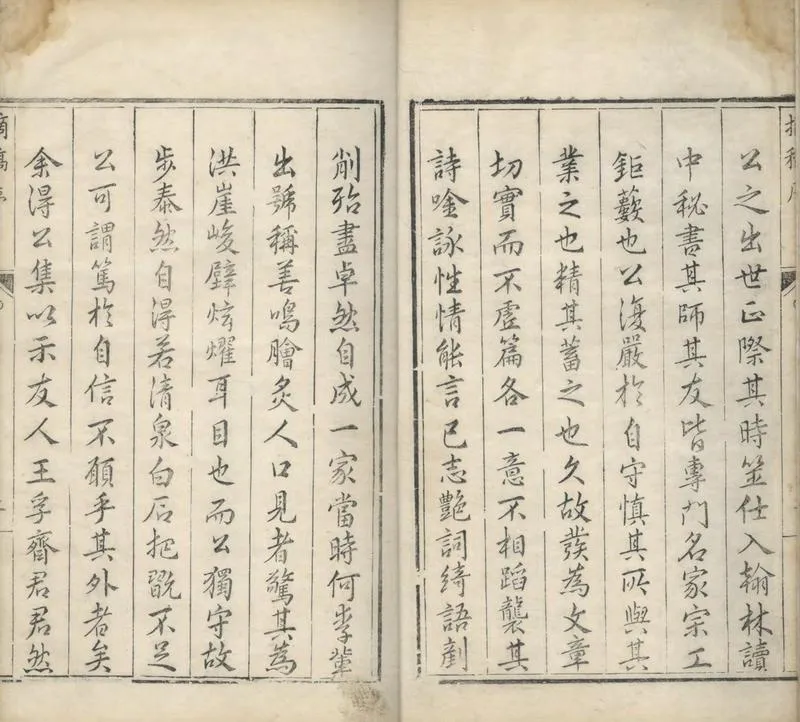 公之出世正際其時筮仕入翰林讀
中秘書其師其友皆專門名家宗工
鉅藪也公復嚴於自守慎其所與其
業之也精其蓄之也久故發為文章
切實而不虛篇各一意不相蹈襲其
詩唫詠性情能言已志艷詞綺語剷
削殆盡卓然自成一家當時何李輩
出號稱善鳴膾炙人口見者驚其為
洪崖峻壁炫燿耳目也而公獨守故
步泰然自得若清泉白石挹翫不足
公可謂篤於自信不願乎其外者矣
余得公集以示友人王孚齋君君然
摘稿序